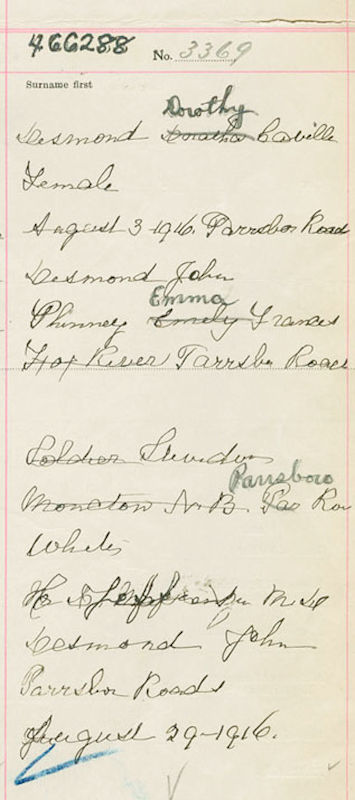 466288 No. 3369
Surname first
Dorothy
Desmond Dorotha Caville
Female
August 3 1916. Parrsboro Roads
Desmond John
Emma
Phinney Emily Frances
Fox River Parrsboro Roads
Soldier
Parrsboro
Moncton N.B. Par Roa
White
M.D.
Desmond John
Parrsboro Roads
August 29-1916.